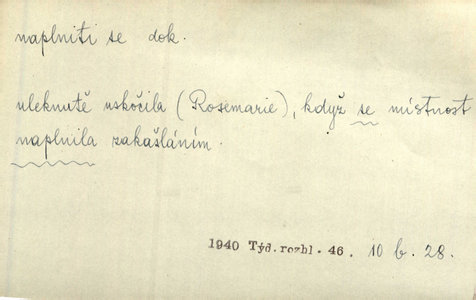 naplniti se dok.
uleknutě uskočila (Rosemarie), když se místnost
naplnila zakašláním.
1940 Týd. rozhl. 46. 10 b. 28.